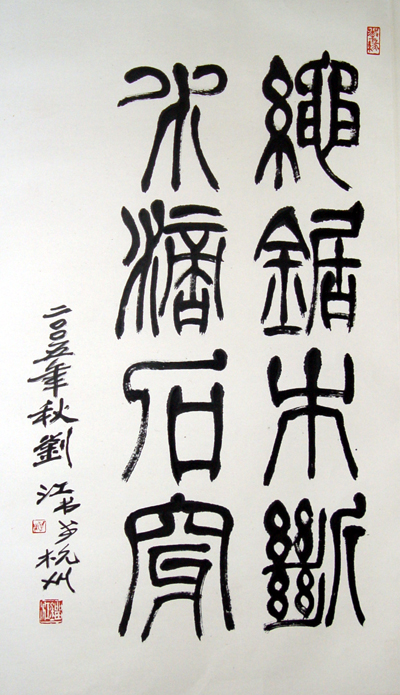 繩鋸木斷
水滴石穿
二〇〇五年秋劉江书于杭州